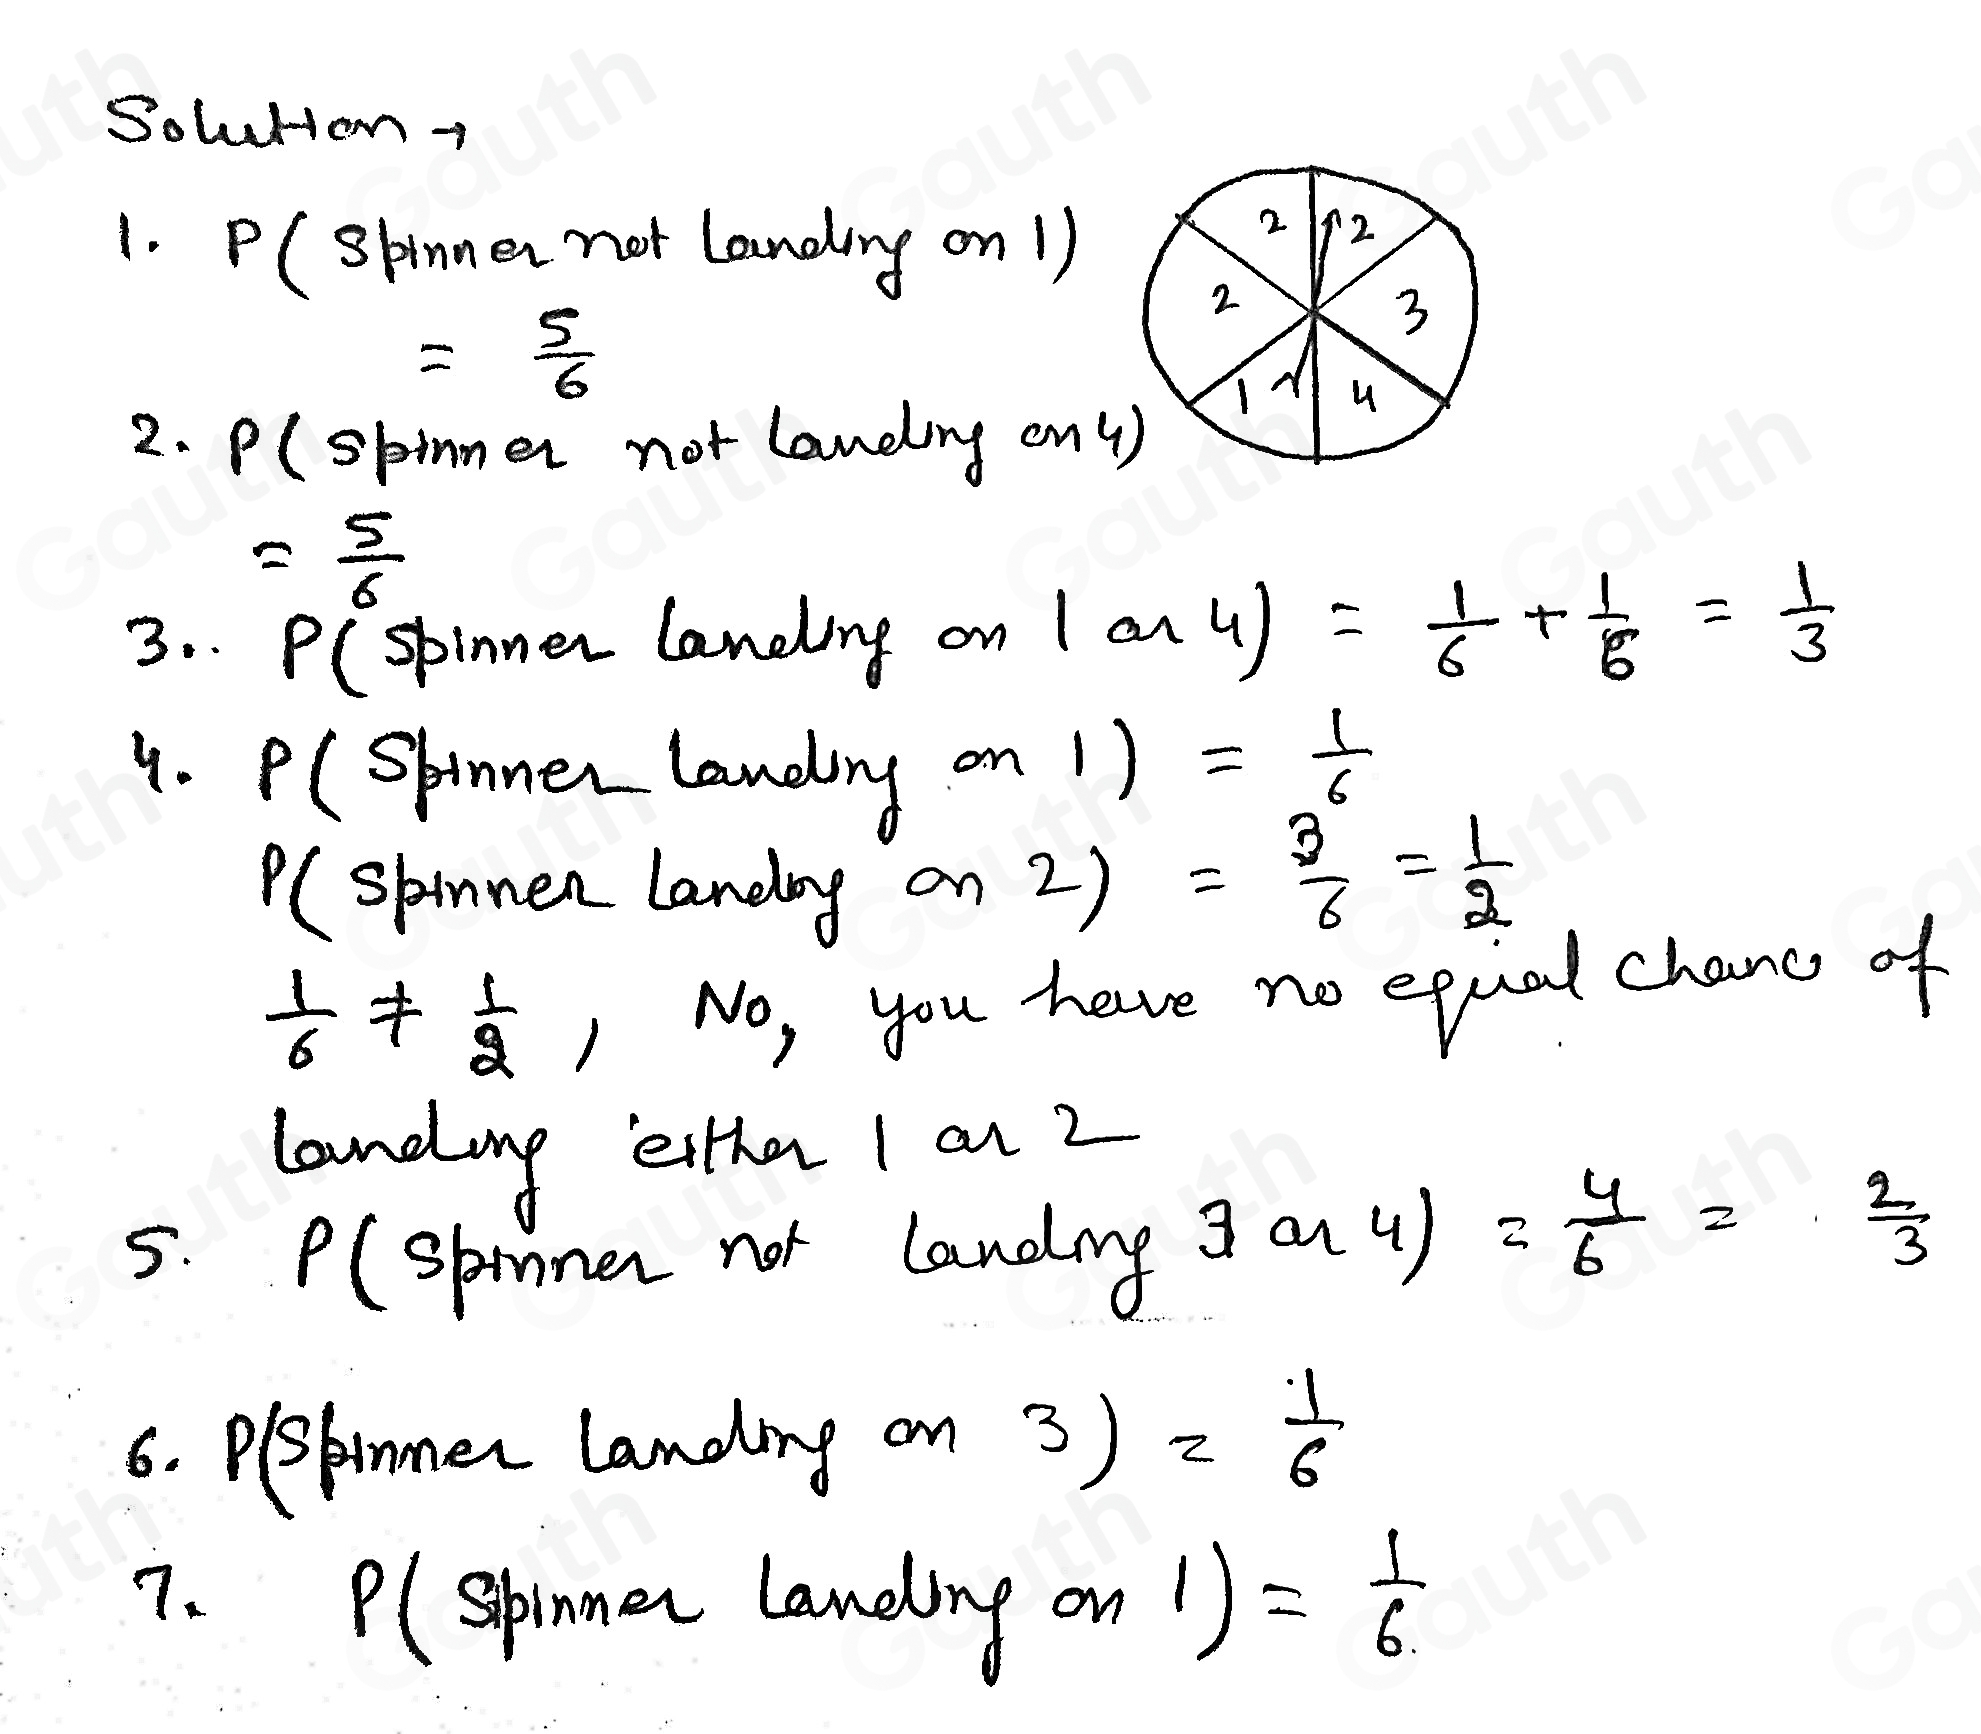 Solution →
1. P( Spinner not landing on 1)
= 5/6
2 2
2 3
1 4
2. P( spinner not landing on 4)
= 5/6
3.. P( spinner landing on 1 or 4) = 1/6 + 1/6 = 1/3
4. P( Spinner landing on 1 ) = 1/6
P( spinner landing on 2) = 3/6 = 1/2
1/6 ≠ 1/2 , No, you have no equal chance of
landing either 1 or 2
5. P( spinner not landing 3 or 4) = 4/6 = 2/3
6. P(Spinner landing on 3) = 1/6
7. P( Spinner landing on 1) = 1/6
Gauth